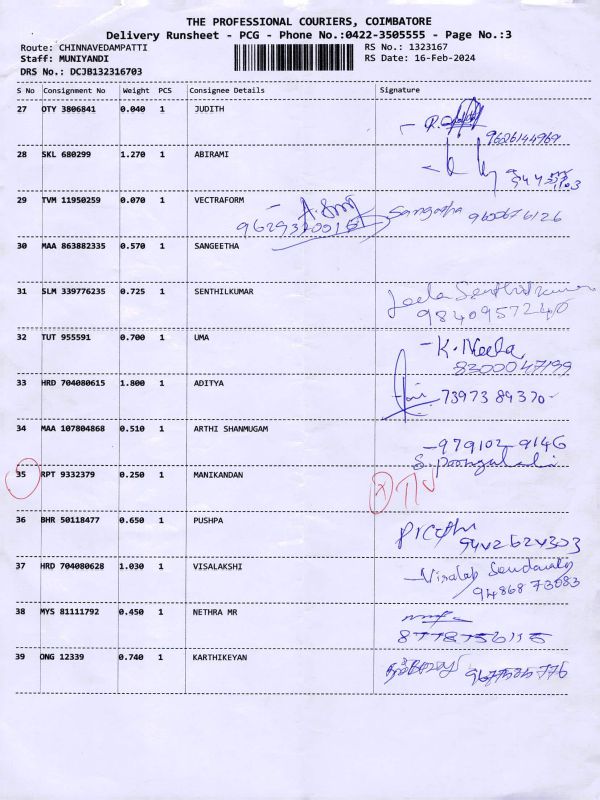 THE PROFESSIONAL COURIERS, COIMBATORE
Delivery Runsheet - PCG - Phone No.:0422-3505555 - Page No.:3
Route: CHINNAVEDAMPATTI RS No.: 1323167
Staff: MUNIYANDI RS Date: 16-Feb-2024
DRS No.: DCJB132316703
S No Consignment No Weight PCS Consignee Details Signature
27 OTY 3806841 0.040 1 JUDITH
9626144969
28 SKL 680299 1.270 1 ABIRAMI
29 TVM 11950259 0.070 1 VECTRAFORM
Sangeetha
30 MAA 863882335 0.570 1 SANGEETHA
31 SLM 339776235 0.725 1 SENTHILKUMAR Leela Senthilkumar
9840957240
32 TUT 955591 0.700 1 UMA -K. Neela
8300047199
33 HRD 704080615 1.800 1 ADITYA
7397389370-
34 MAA 107804868 0.510 1 ARTHI SHANMUGAM
-979102 9146
35 RPT 9332379 0.250 1 MANIKANDAN
36 BHR 50118477 0.650 1 PUSHPA
9442624303
37 HRD 704080628 1.030 1 VISALAKSHI
94868 73083
38 MYS 81111792 0.450 1 NETHRA MR
39 ONG 12339 0.740 1 KARTHIKEYAN